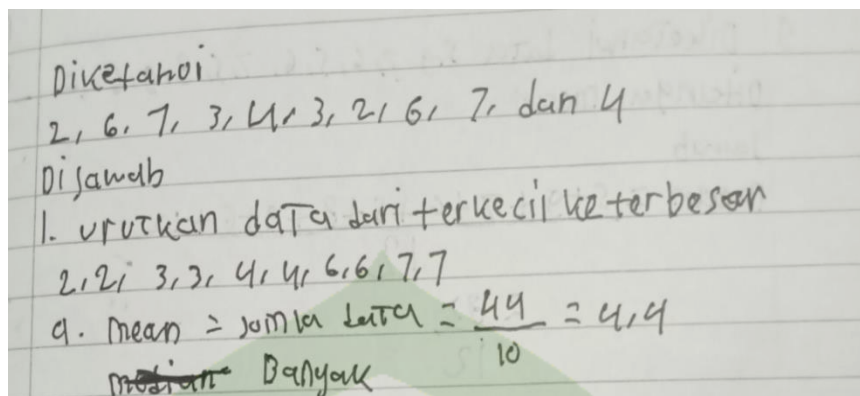 Diketahoi
2, 6, 7, 3, 4, 3, 2, 6, 7, dan 4
Dijawab
1. urutkan data dari terkecil ke terbesar
2, 2, 3, 3, 4, 4, 6, 6, 7, 7
a. mean = Jomla data = 44/10 = 4,4
median Banyak